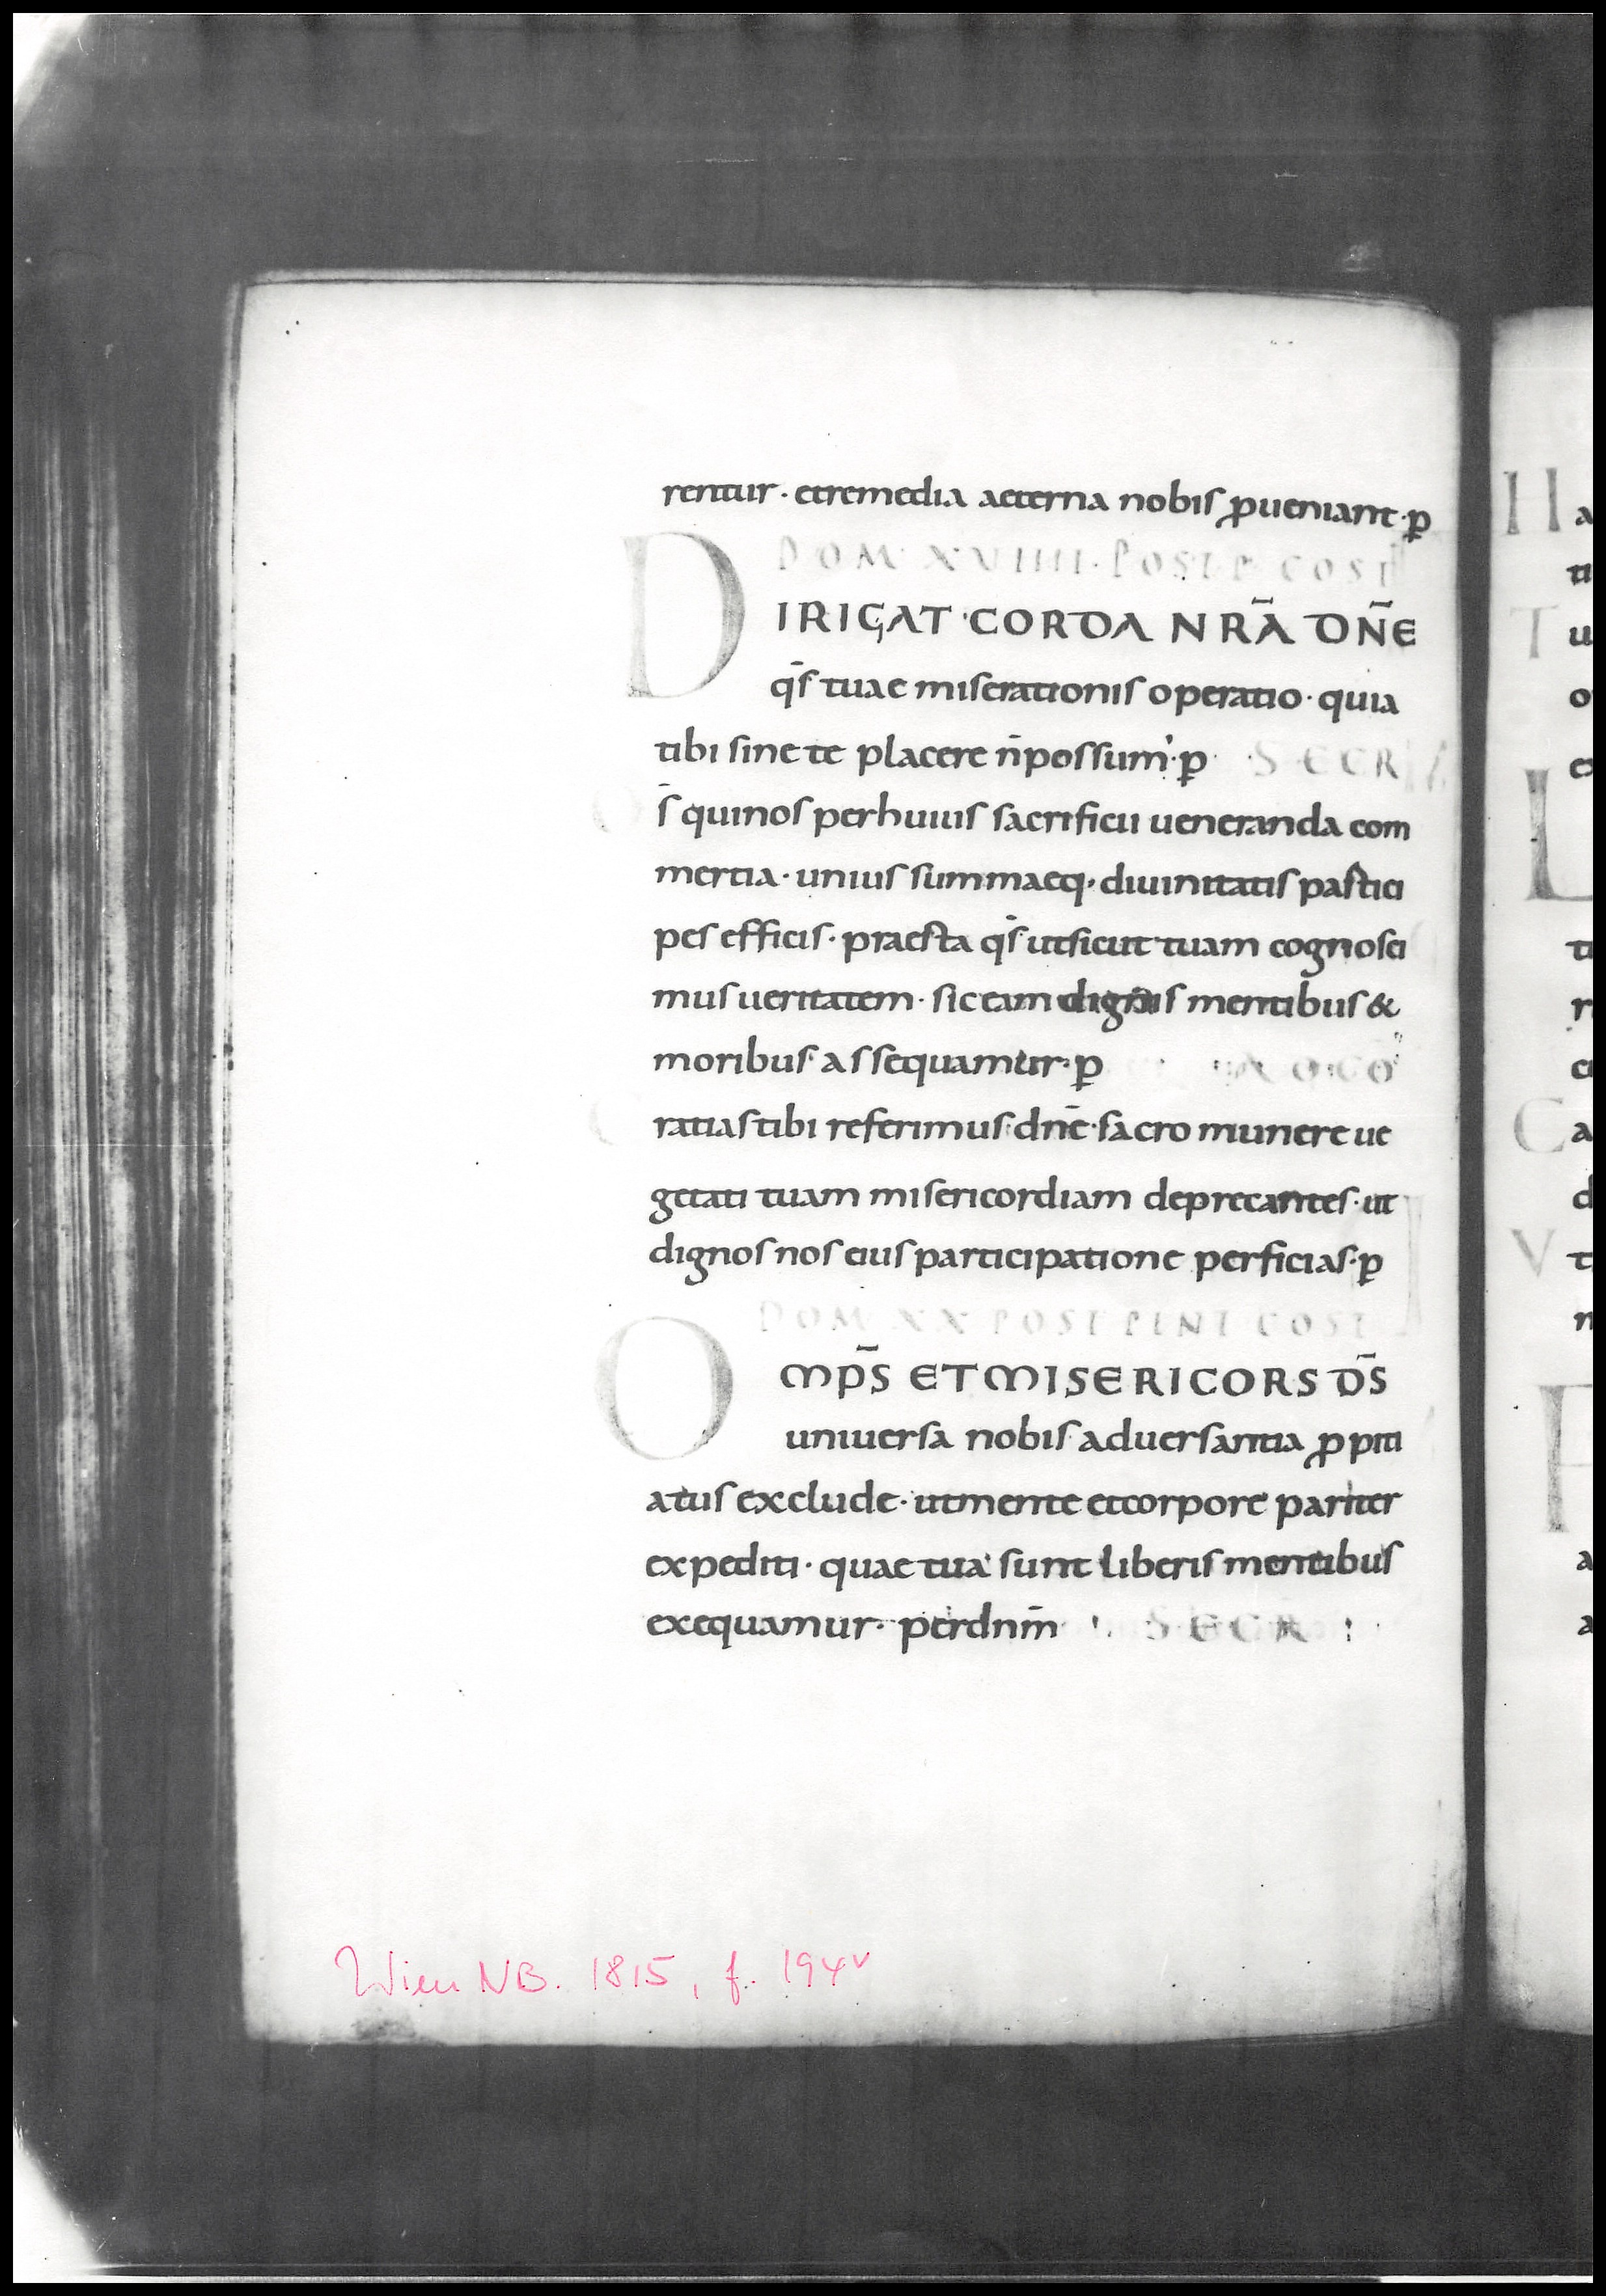 rentur · et remedia aeterna nobis ꝓueniant · p̱
DOM XVIIII · POST P COST
DIRIGAT CORDA NR̄A DN̄E
q̄s tuae miserationis operatio · quia
tibi sine te placere n̄ possum' · p̱ SECR
D̄s qui nos per huius sacrificii ueneranda com
mertia · unius summaeq· diuinitatis partici
pes efficis · praesta q̄s ut sicut tuam cognosci
mus ueritatem · sic eam dignis mentibus &
moribus assequamur · p̱ A D CO
Gratias tibi referimus dn̄e · sacro munere ue
getati tuam misericordiam deprecantes · ut
dignos nos eius participatione perficias · p̱
DOM XX POST PENT COST
OMP̄S ET MISERICORS D̄S
uniuersa nobis aduersantia ꝓpiti
atus exclude · ut mente et corpore pariter
expediti · quae tua sunt liberis mentibus
exequamur · per dn̄m SECR
Wien NB. 1815, f. 194v